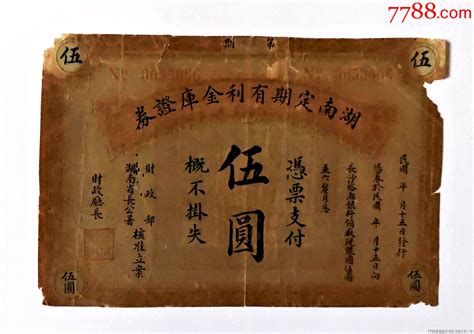 7788.com
第 期
伍
伍
湖南定期有利金庫證券
民國 年 月十五日發行
憑券於民國 年 月十五日向
長沙 銀行領取現銀圓伍圓
憑票支付
伍圓
概不掛失
財政部
湖南省長公署
核准立案
財政廳長
伍圓
伍圓